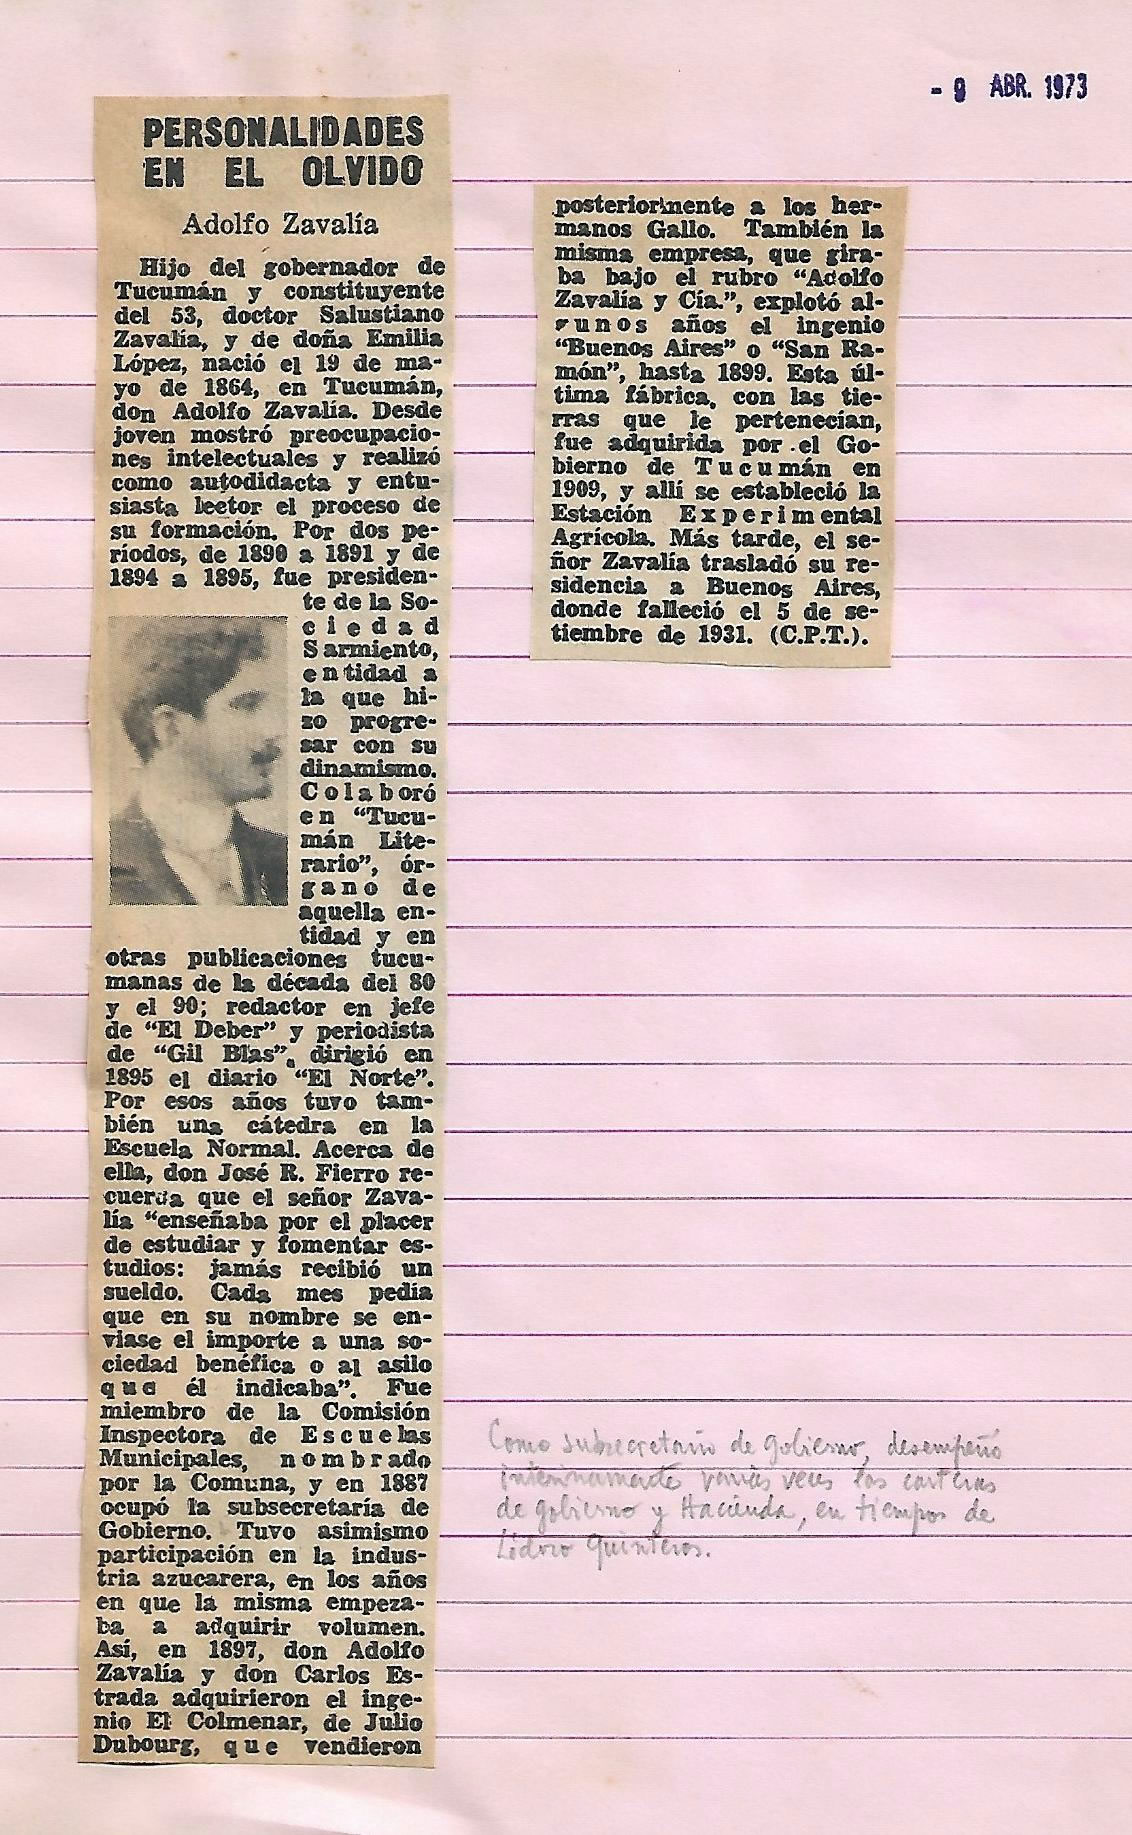 - 9 ABR. 1973
PERSONALIDADES
EN EL OLVIDO
Adolfo Zavalía
Hijo del gobernador de
Tucumán y constituyente
del 53, doctor Salustiano
Zavalía, y de doña Emilia
López, nació el 19 de ma-
yo de 1864, en Tucumán,
don Adolfo Zavalía. Desde
joven mostró preocupacio-
nes intelectuales y realizó
como autodidacta y entu-
siasta lector el proceso de
su formación. Por dos pe-
ríodos, de 1890 a 1891 y de
1894 a 1895, fue presiden-
te de la So-
ciedad
Sarmiento,
entidad a
la que hi-
zo progre-
sar con su
dinamismo.
Colaboró
en “Tucu-
mán Lite-
rario”, ór-
gano de
aquella en-
tidad y en
otras publicaciones tucu-
manas de la década del 80
y el 90; redactor en jefe
de “El Deber” y periodista
de “Gil Blas”, dirigió en
1895 el diario “El Norte”.
Por esos años tuvo tam-
bién una cátedra en la
Escuela Normal. Acerca de
ella, don José R. Fierro re-
cuerda que el señor Zava-
lía “enseñaba por el placer
de estudiar y fomentar es-
tudios: jamás recibió un
sueldo. Cada mes pedía
que en su nombre se en-
viase el importe a una so-
ciedad benéfica o al asilo
que él indicaba”. Fue
miembro de la Comisión
Inspectora de Escuelas
Municipales, nombrado
por la Comuna, y en 1887
ocupó la subsecretaría de
Gobierno. Tuvo asimismo
participación en la indus-
tria azucarera, en los años
en que la misma empeza-
ba a adquirir volumen.
Así, en 1897, don Adolfo
Zavalía y don Carlos Es-
trada adquirieron el inge-
nio El Colmenar, de Julio
Dubourg, que vendieron
posteriormente a los her-
manos Gallo. También la
misma empresa, que gira-
ba bajo el rubro “Adolfo
Zavalía y Cía.”, explotó al-
gunos años el ingenio
“Buenos Aires” o “San Ra-
món”, hasta 1899. Esta úl-
tima fábrica, con las tie-
rras que le pertenecían,
fue adquirida por el Go-
bierno de Tucumán en
1909, y allí se estableció la
Estación Experimental
Agrícola. Más tarde, el se-
ñor Zavalía trasladó su re-
sidencia a Buenos Aires,
donde falleció el 5 de se-
tiembre de 1931. (C.P.T.).
Como subsecretario de Gobierno, desempeñó
interinamente varias veces las carteras
de Gobierno y Hacienda, en tiempos de
Lidoro Quinteros.